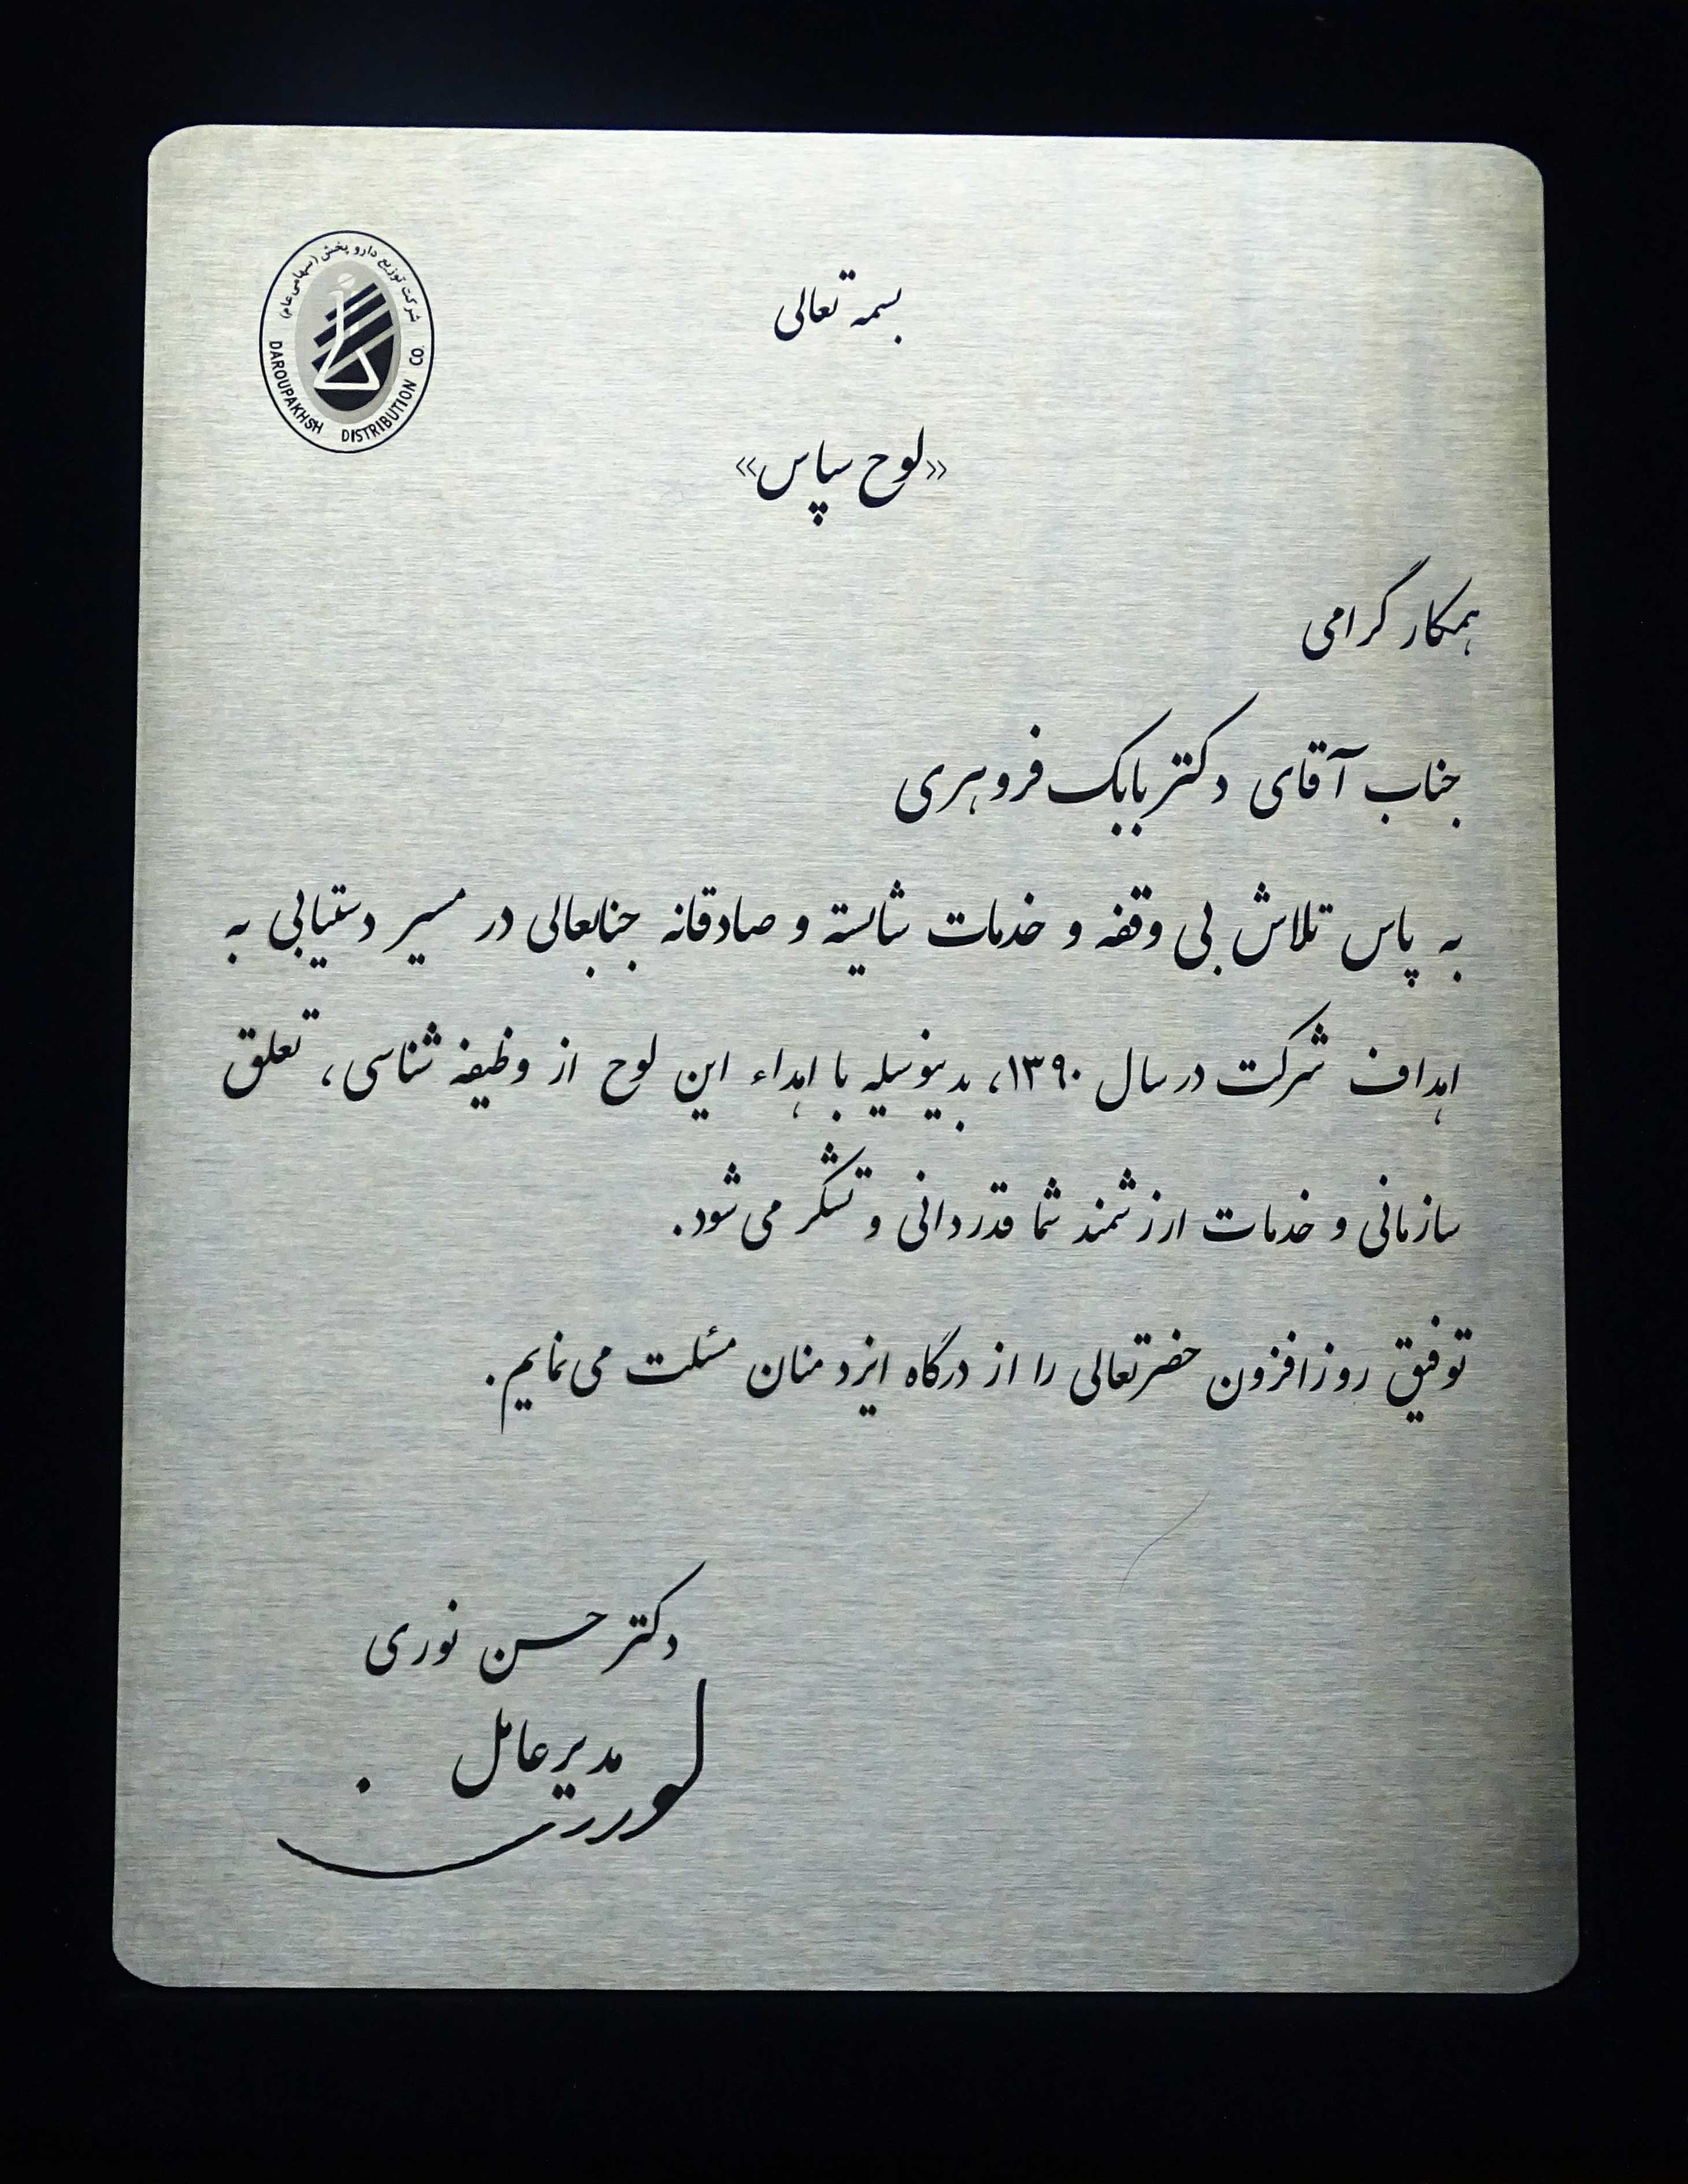 شرکت توزیع دارو پخش (سهامی عام)
DAROUPAKHSH DISTRIBUTION CO.
بسمه تعالی
«لوح سپاس»
همکار گرامی
جناب آقای دکتر بابک فروهری
به پاس تلاش بی وقفه و خدمات شایسته و صادقانه جنابعالی در مسیر دستیابی به
اهداف شرکت در سال ۱۳۹۰، بدینوسیله با اهداء این لوح از وظیفه شناسی، تعلق
سازمانی و خدمات ارزشمند شما قدردانی و تشکر می شود.
توفیق روزافزون حضرتعالی را از درگاه ایزد منان مسئلت می نمایم.
دکتر حسن نوری
مدیر عامل